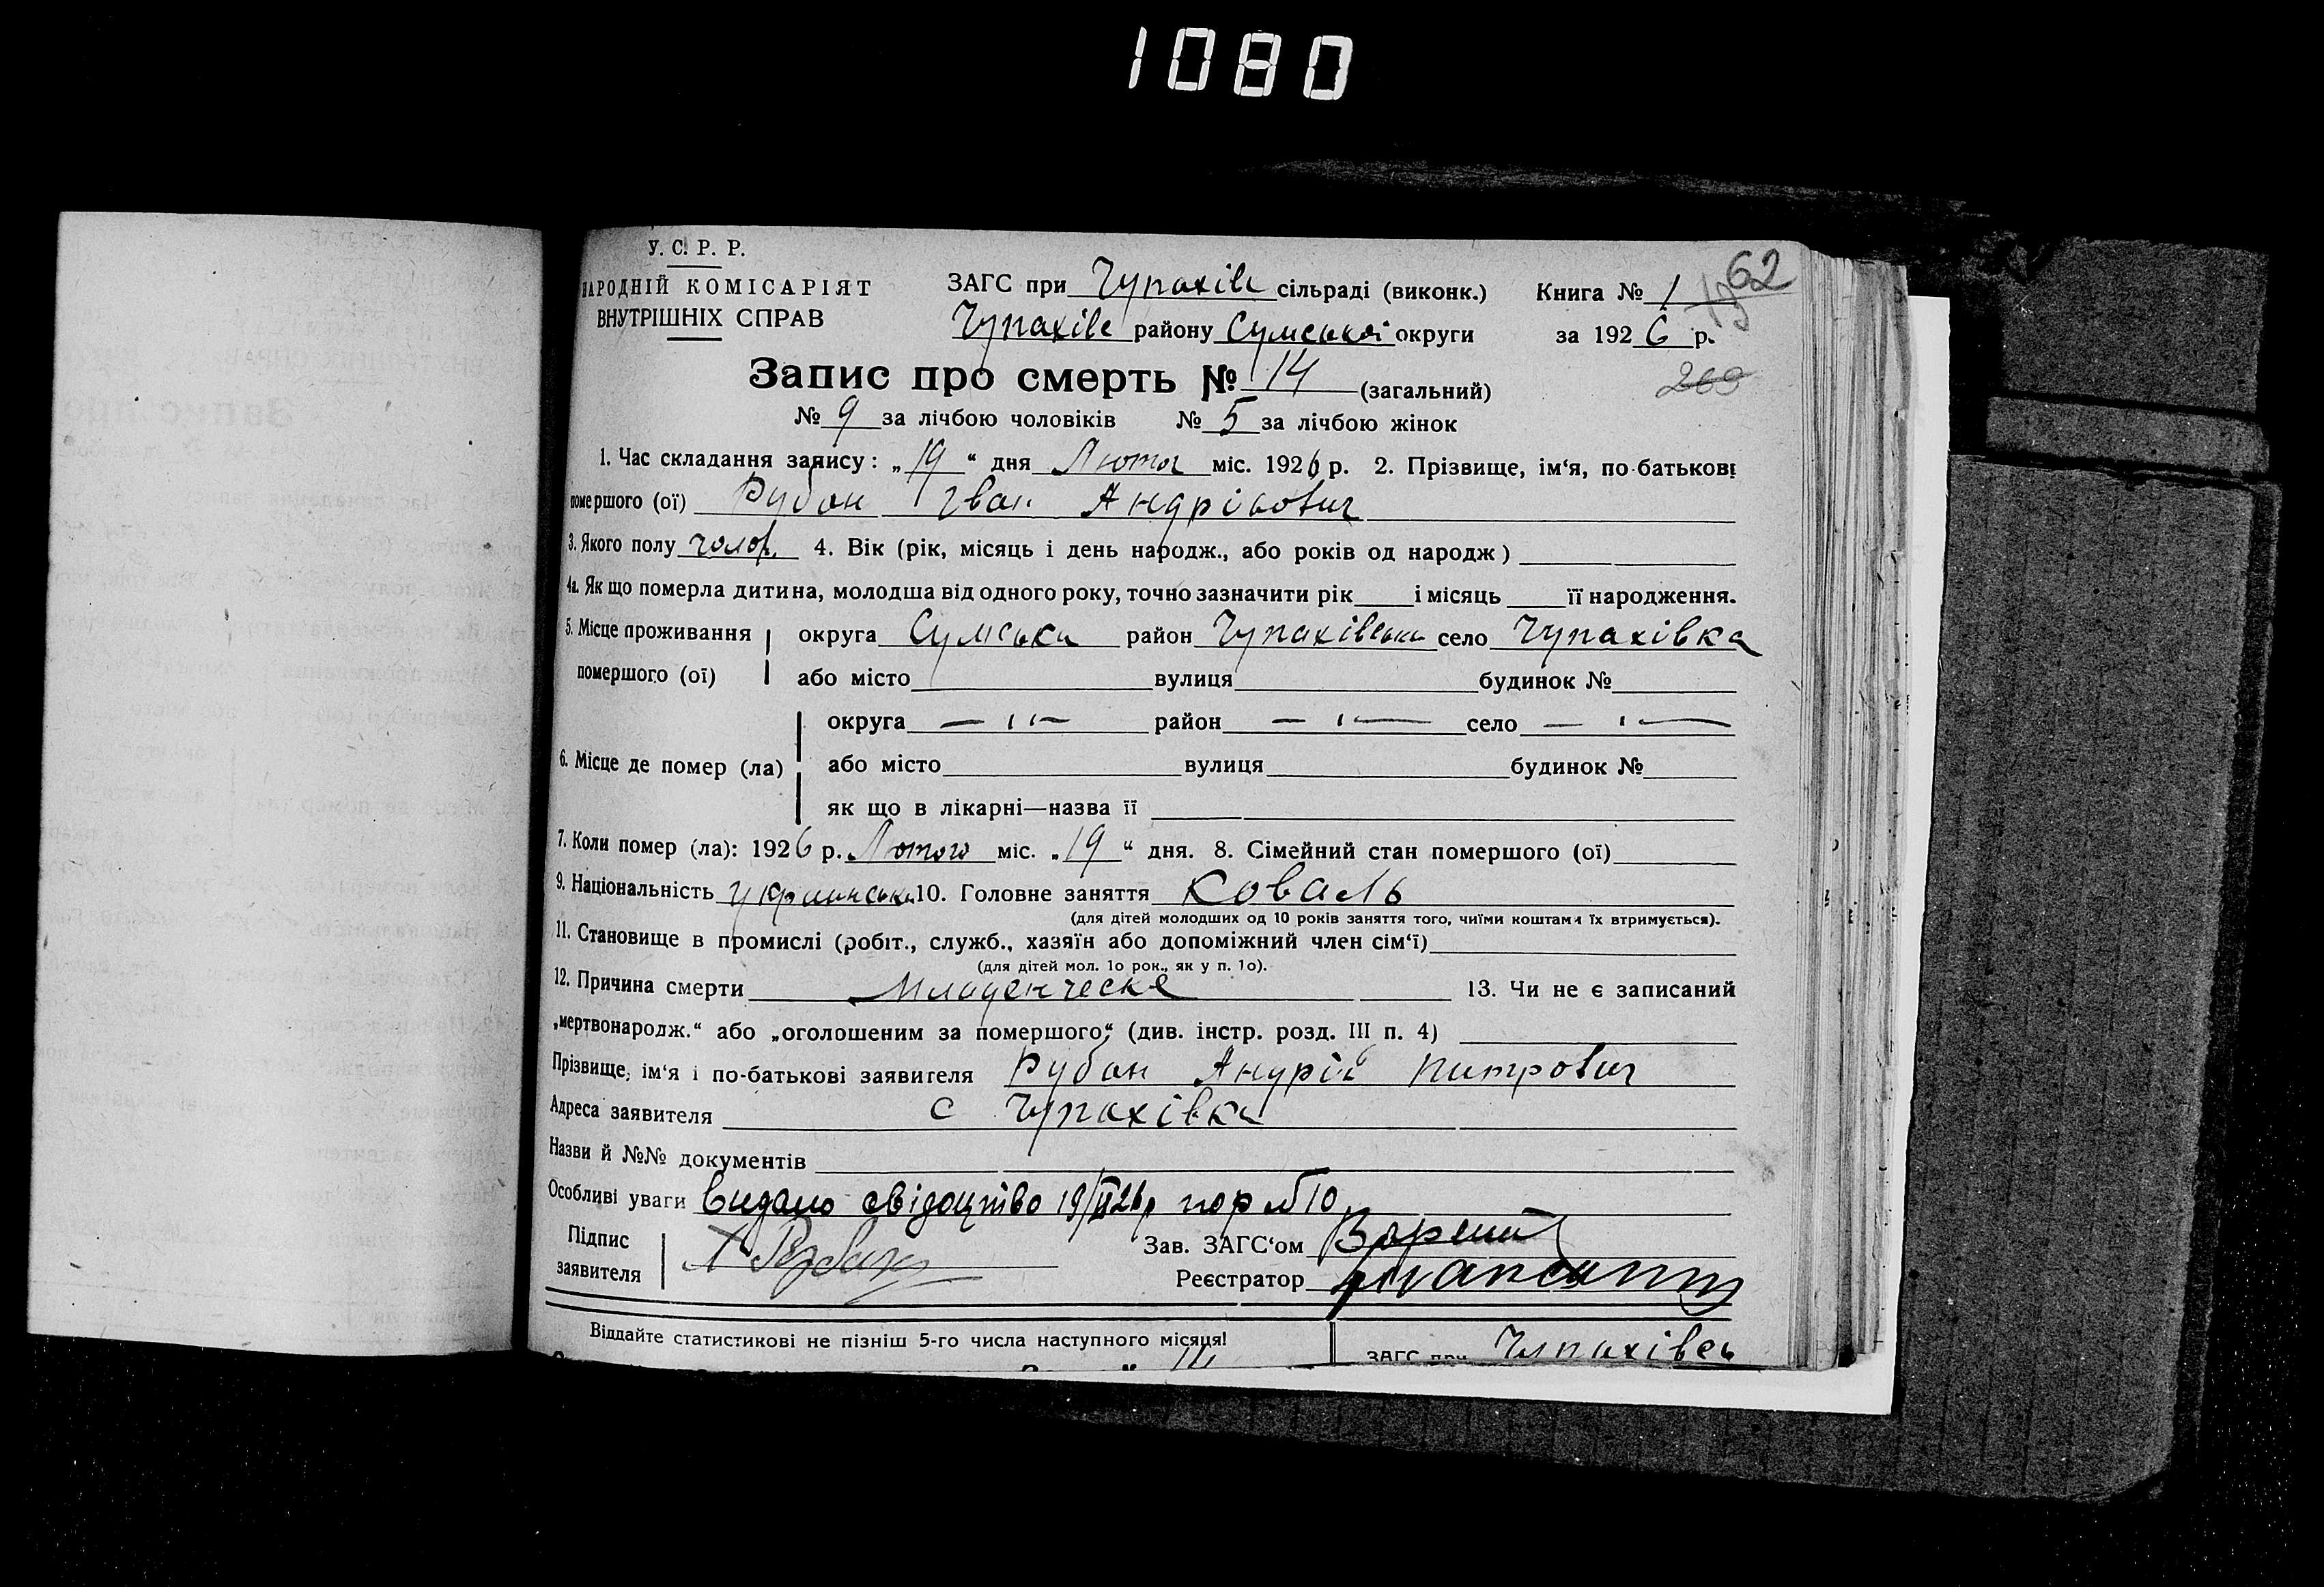 1080
У. С. Р. Р.
НАРОДНІЙ КОМІСАРІЯТ
ВНУТРІШНІХ СПРАВ
ЗАГС при Чупахівс сільраді (виконк.) Книга № 1 62
Чупахівс району Сумської округи за 1926 р.
Запис про смерть № 14 (загальний) 269
№ 9 за лічбою чоловіків № 5 за лічбою жінок
1. Час складання запису: „19“ дня Лютог міс. 1926 р. 2. Прізвище, ім‘я, по-батькові
помершого (ої) Рубан Іван Андрійович
3. Якого полу чолов. 4. Вік (рік, місяць і день народж., або років од народж)
4а. Як що померла дитина, молодша від одного року, точно зазначити рік і місяць її народження.
5. Місце проживання округа Сумська район Чупахівськи село Чупахівка
помершого (ої) або місто вулиця будинок №
округа — ıı — район — ı — село — ı —
6. Місце де помер (ла) або місто вулиця будинок №
як що в лікарні—назва її
7. Коли помер (ла): 1926 р. Лютого міс. „19“ дня. 8. Сімейний стан помершого (ої)
9. Національність 10. Головне заняття Коваль
(для дітей молодших од 10 років заняття того, чиїми коштами їх втримується).
11. Становище в промислі (робіт., служб., хазяїн або допоміжний член сім‘ї)
(для дітей мол. 1о рок., як у п. 1о).
12. Причина смерти Младенческе 13. Чи не є записаний
„мертвонародж.“ або „оголошеним за помершого“ (див. інстр. розд. III п. 4)
Прізвище, ім‘я і по-батькові заявителя Рубан Андрій Питрович
Адреса заявителя с Чупахівка
Назви й №№ документів
Особливі уваги Видано свідоцтво 19/II 26 р нор №10
Підпис
заявителя А Рубан
Зав. ЗАГС‘ом
Реєстратор
Віддайте статистикові не пізніш 5-го числа наступного місяця!
ЗАГС при Чупахівсь